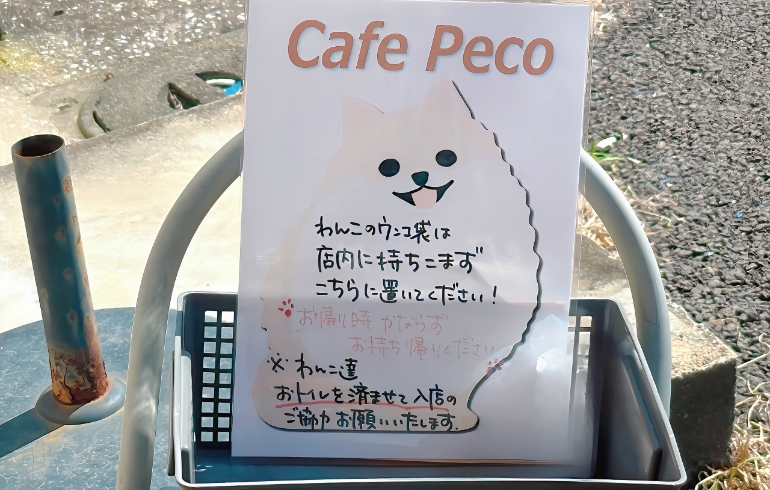 Cafe Peco
わんこのウンコ袋は
店内に持ちこまず
こちらに置いてください!
お帰り時 かならず
お持ち帰りください
※わんこ達
おトイレを済ませて入店の
ご協力お願いいたします.